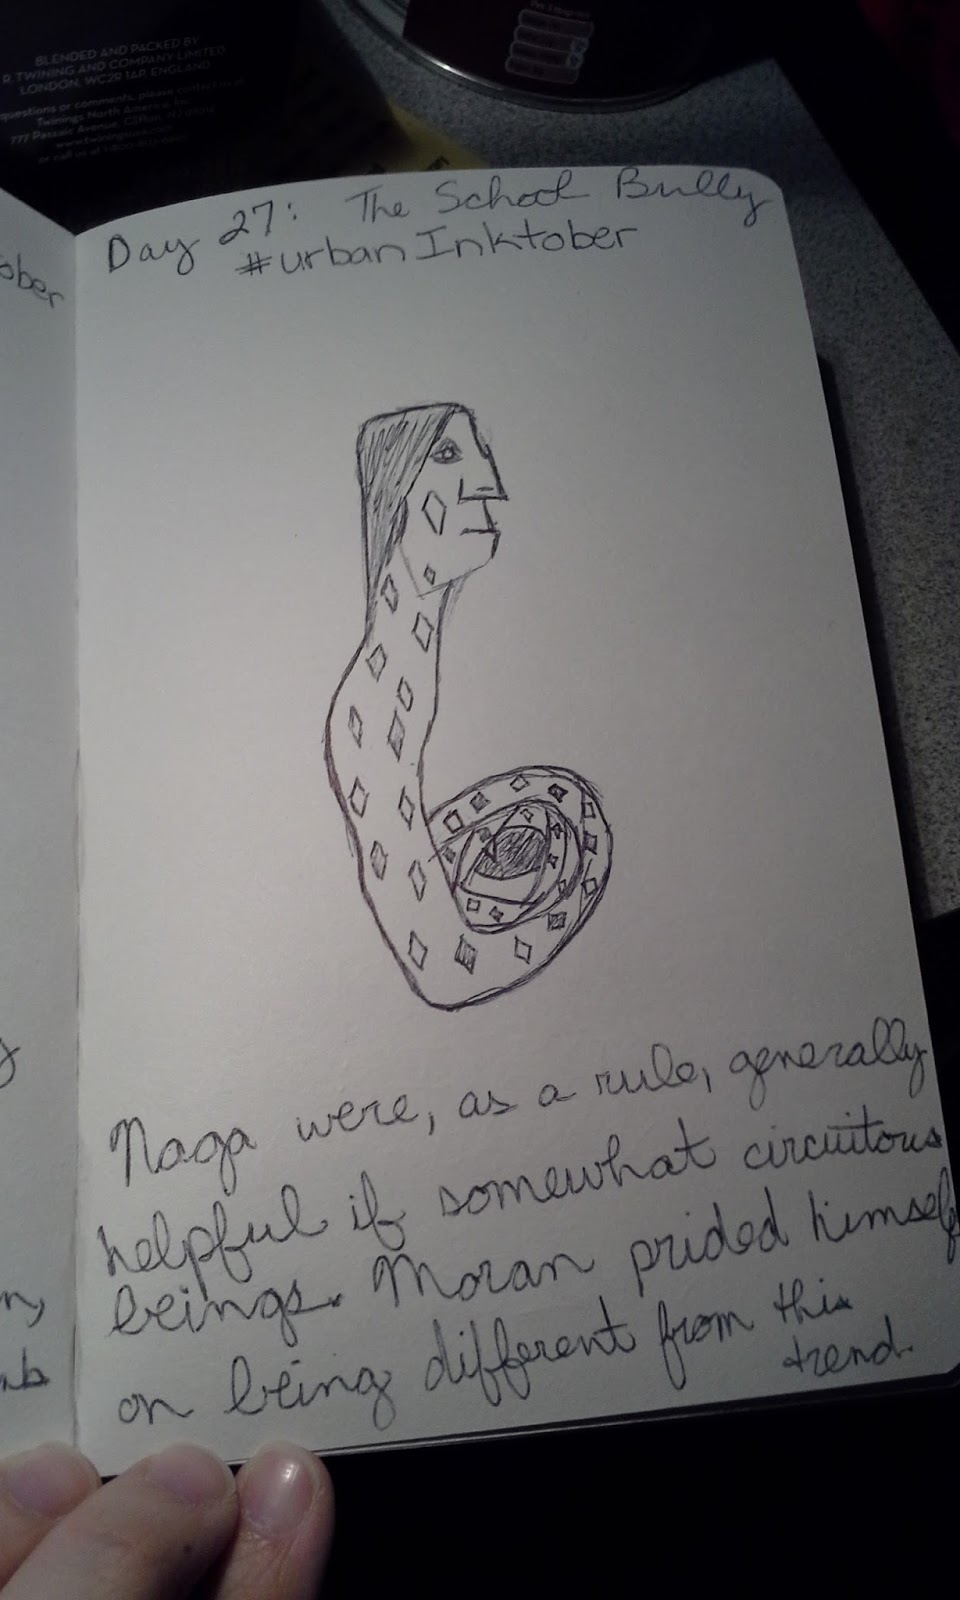 BLENDED AND PACKED BY
R. TWINING AND COMPANY LIMITED
LONDON, WC2R 1AP, ENGLAND
questions or comments, please contact us at
Twinings North America, Inc.
777 Passaic Avenue, Clifton, NJ 07012
www.twiningsusa.com
or call us at
ober
Day 27: The School Bully
#urbanInktober
Naga were, as a rule, generally
helpful if somewhat circuitous
beings. Moran prided himself
on being different from this
trend.